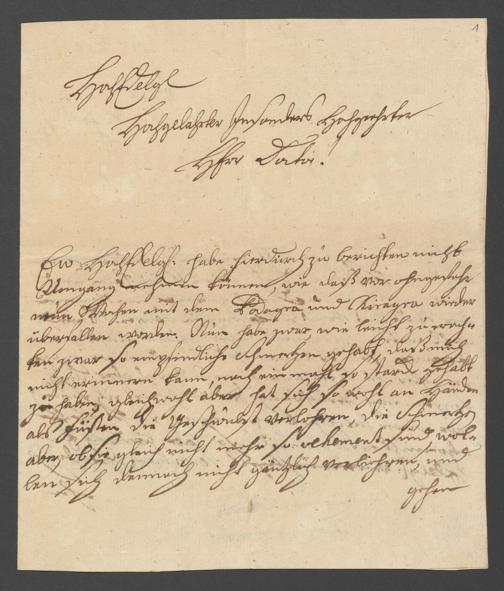 1
HochEdelgl
Hochgelahrter Insonders Hochgeehrter
Herr Dotor!
Ew HochEdelgl. habe hierdurch zu berichten nicht
Umgang nehmen können, wie daß vor ohngefehr
neün Wochen mit dem Podagra und Chiragra wieder
überfallen worden. Nun habe zwar wie leicht zu erach-
ten zwar so empfindliche Schmertzen gehabt, daß mich
nicht erinnern kann, noch ein mahl so starck gehabt
zu haben, gleichwohl aber hat sich so wohl an Händen
als Füßen die Geschwulst verlohren, die Schmertzen
aber, ob sie gleich nicht mehr so vehement sind, wol-
len sich dennoch nicht gäntzlich verliehren, und
gehen